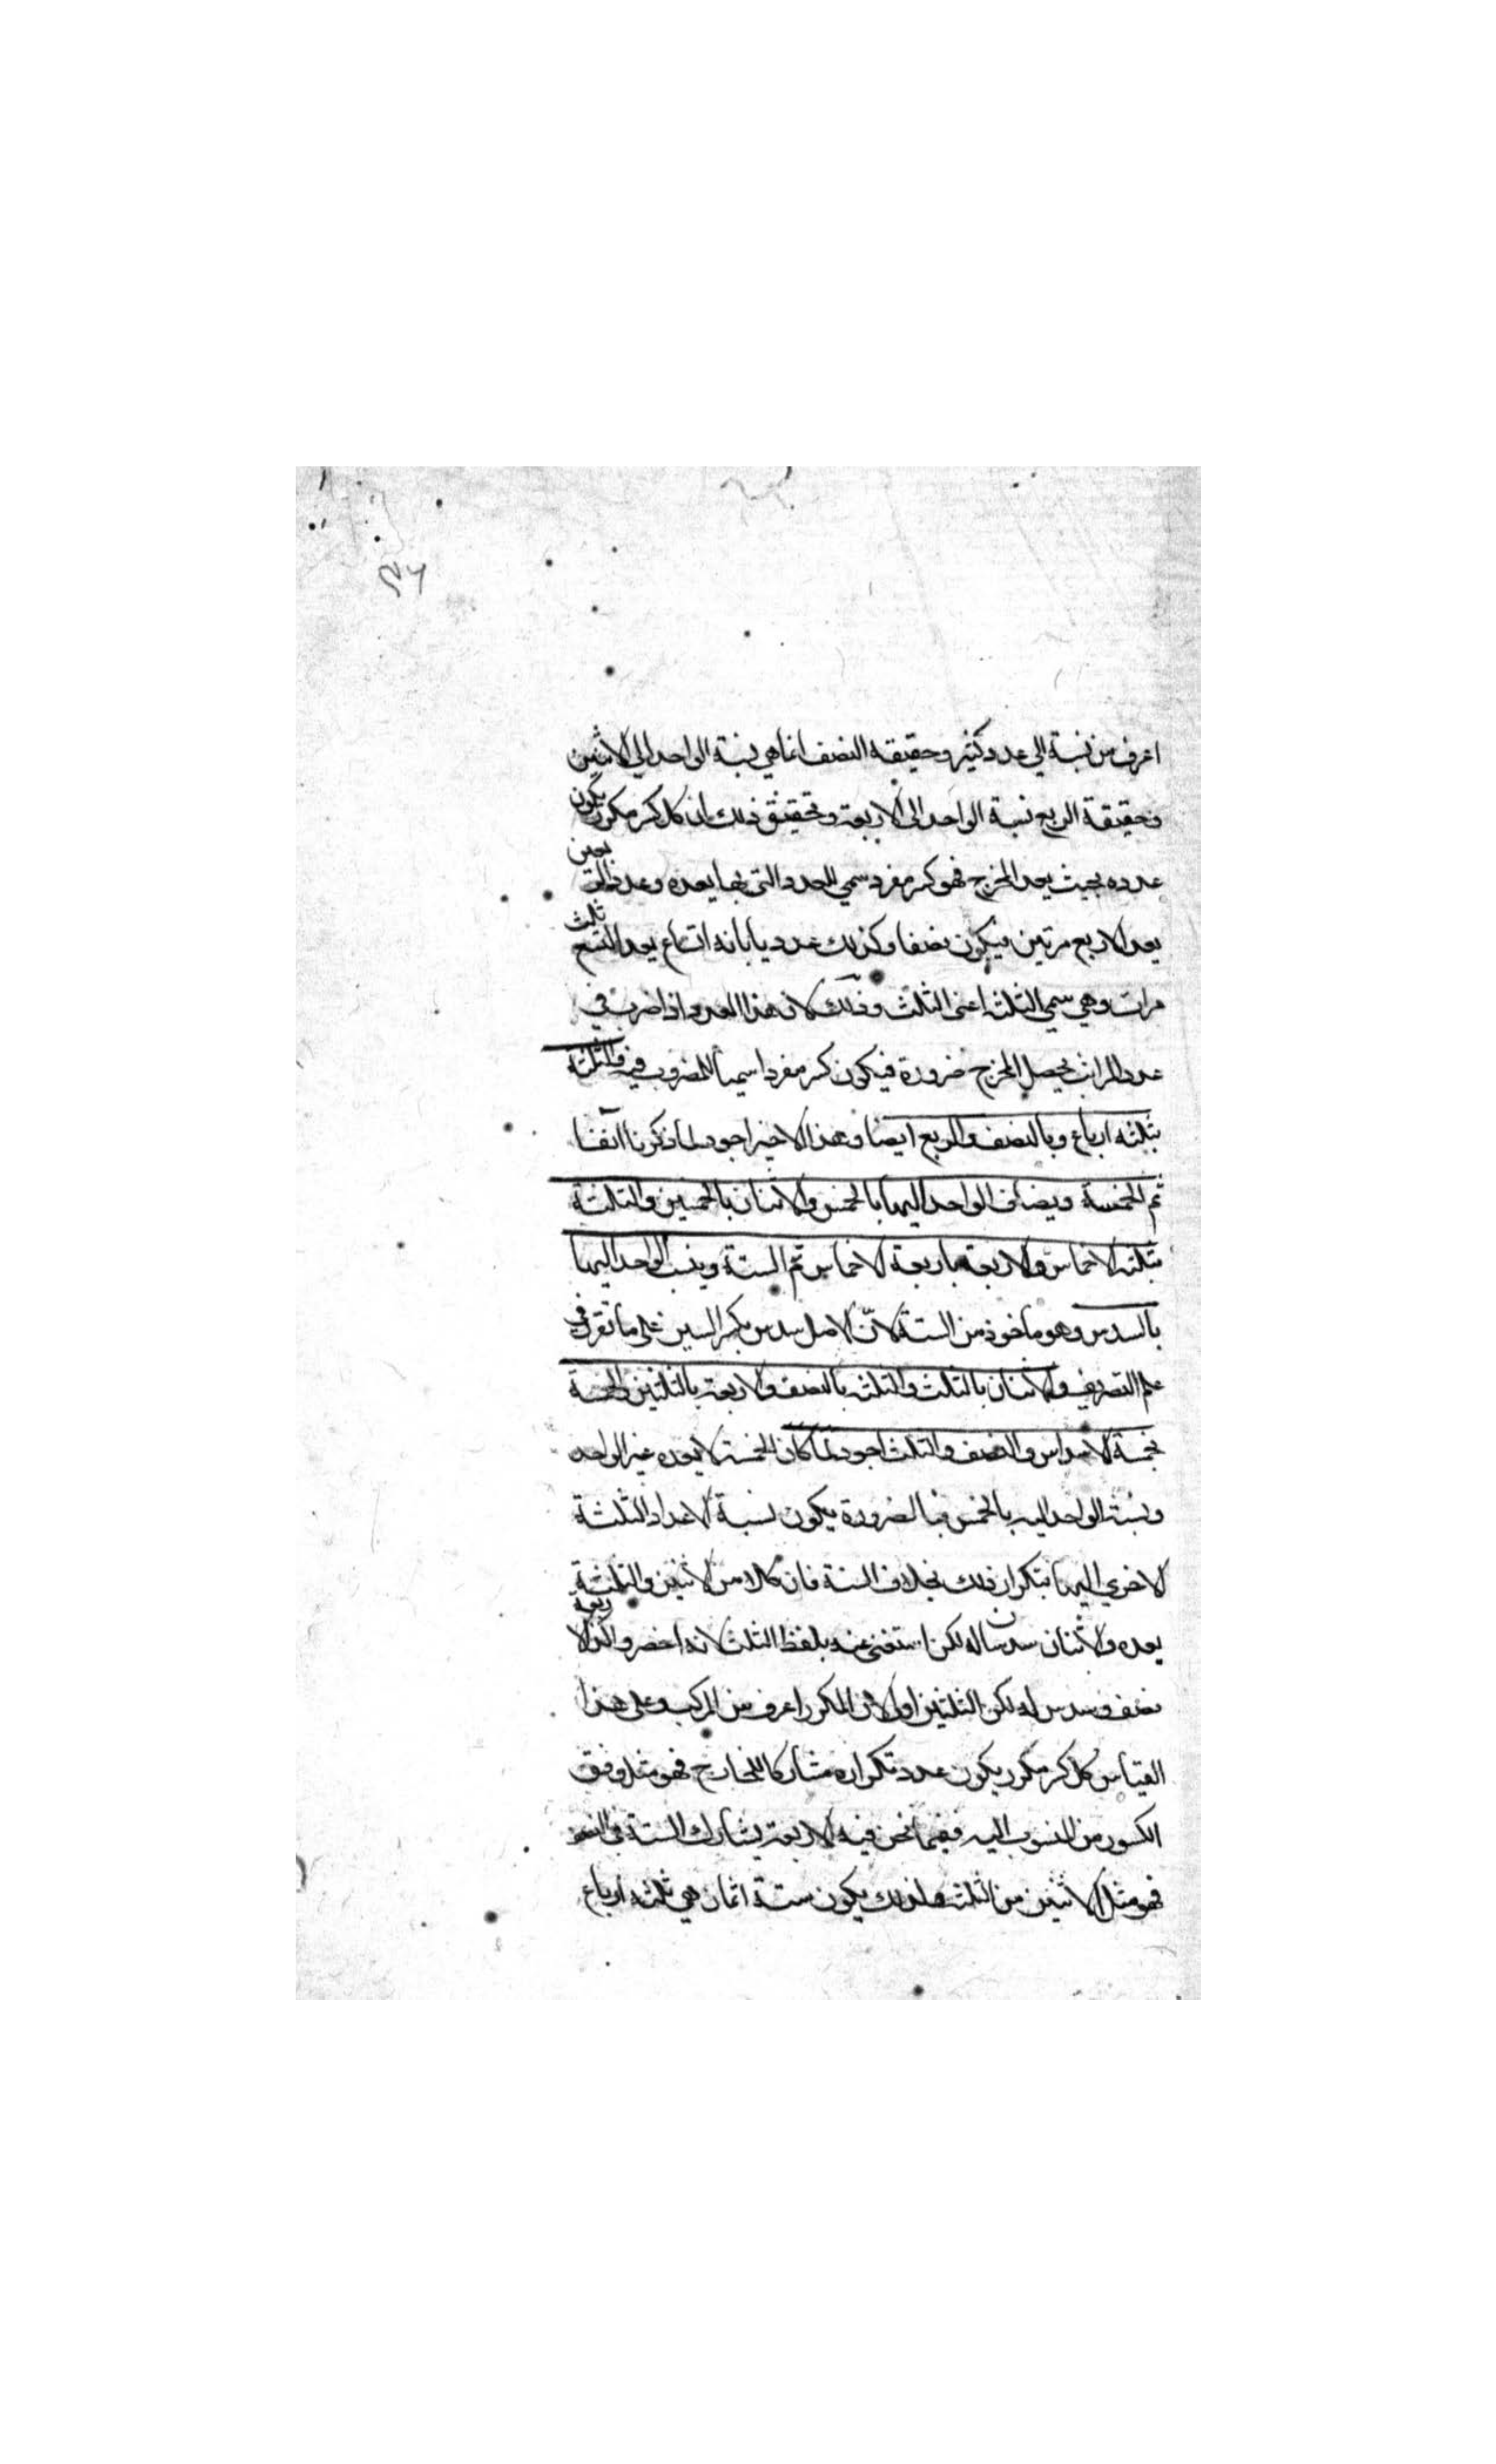 اعرف من نسبة الي عدد كثير وحقيقة النصف انما هي نسبة الواحد الي الاثنين
وحقيقة الربع نسبة الواحد الى الاربعة وتحقيق ذلك ان كل كسر مكرر يكون
عدده بحيث يعد المخرج فهو كسر مفرد سمي للعدد التي بها يعده وعدد
يعد الاربع مرتين فيكون نصفا وكذلك عدد اتساع يعد التسع ثلث
مرات وهي سمي الثلثة اعنى الثلث وذلك لان هذا العدد اذا ضرب في
عدد المرات يحصل المخرج ضرورة فيكون كسر مفردا سميا للمضروب فيه والثلثة
بثلثة ارباع وبالنصف والربع ايضا وهذا الاخير اجود لما ذكرنا آنفا
ثم الخمسة ويضاف الواحد اليها بالخمس والاثنان بالخمسين والثلثة
بثلثة الاخماس والاربعة باربعة الاخماس ثم الستة وينسب الواحد اليها
بالسدس وهو ماخوذ من الستة لانّ الاصل سدس بكسر السين على ما تقرر في
علم التصريف والاثنان بالثلث والثلثة بالنصف والاربعة بالثلثين والخمسة
بخمسة الاسداس والنصف والثلث اجود لما كان الخمسة لا يعده غير الواحد
ونسبة الواحد اليه بالخمس فبالضرورة يكون نسبة الاعداد الثلثة
الاخري اليها بتكرار ذلك بخلاف الستة فان كلا من الاثنين والثلثة
يعده والاثنان سدسان له لكن استغنى عنه بلفظ الثلث لانه اخصر والاربعة
نصف وسدس له لكن الثلثين اولى لان المكرر اعرف من المركب وعلى هذا
القياس كل كسر مكرر يكون عدد تكراره مشاركا للمخارج فهو مثل وفق
الكسور من المنسوب اليه ففيما نحن فيه الاربعة يشارك الستة في النصف
فهو مثل الاثنين من الثلثة فلذلك يكون ستة اثمان هي ثلثة ارباع